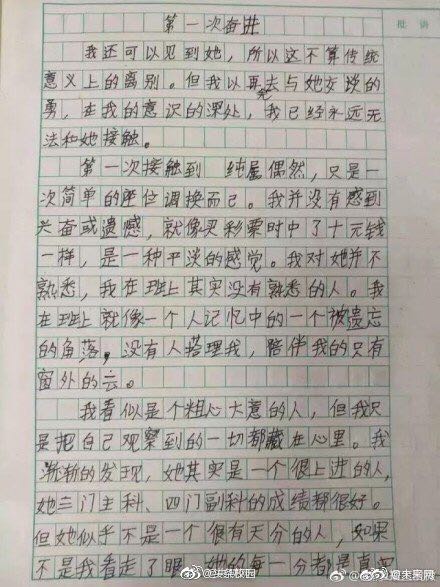 第一次奋进
批讲
我还可以见到她，所以这不算传统
意义上的离别。但我以再无去与她交谈的
勇，在我的意识的深处，我已经永远无
法和她接触。
第一次接触到 纯属偶然，只是一
次简单的座位调换而已。我并没有感到
兴奋或遗憾，就像买彩票时中了十元钱
一样，是一种平淡的感觉。我对她并不
熟悉，我在班上其实没有熟悉的人。我
在班上就像一个人记忆中的一个被遗忘
的角落，没有人搭理我，陪伴我的只有
窗外的云。
我看似是个粗心大意的人，但我只
是把自己观察到的一切都藏在心里。我
渐渐的发现，她其实是一个很上进的人，
她三门主科、四门副科的成绩都很好。
但她似乎不是一个很有天分的人，如果
不是我看走了眼，她的每一分都是真